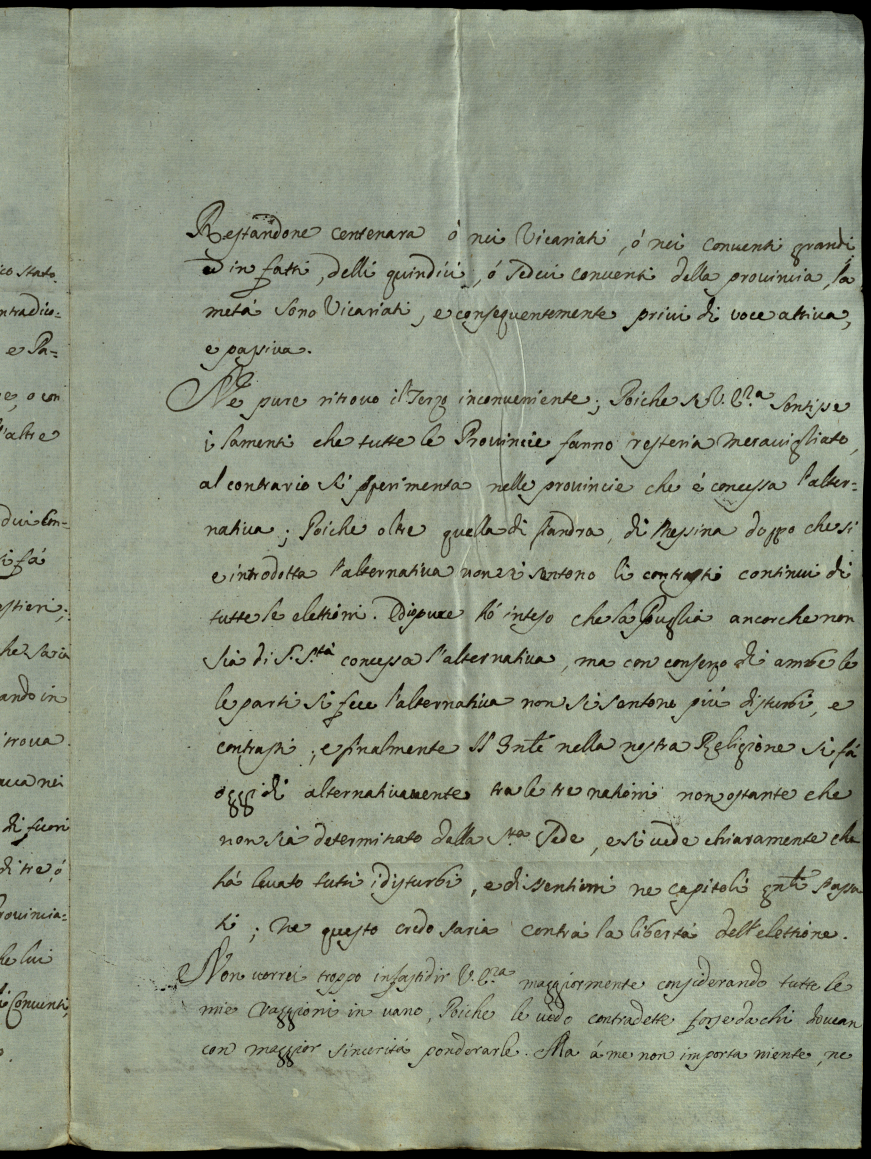 ico stato
ntradico=
e Pa=
e, o con
l'altre
dui Con=
si fá
estieri;
he saria
ando in
trova
acca nei
di fuori
di tre, ó
rovincia=
he lui
Conventi,
Restandone centenara ó nei Vicariati, ó nei conventi grandi
e in fatti, delli quindici, ó sedici conventi della provincia, la
metá sono Vicariati, e consequentemente privi di voce attiva,
e passiva.
Né pure ritrovo il Terzo inconveniente; Poiche si V. P.ra sentisse
i lamenti che tutte le Provincie fanno resteria meravigliato,
al contrario si sperimenta nelle provincie che é concessa l'alter=
nativa; Poiche oltre quella di fiandra, di Messina doppo che si
e introdotta l'alternativa non si sentono li contrasti continui di
tutte le elettioni. Dippure hó inteso che la Puglia ancorche non
sia di S. S.tá concessa l'alternativa, ma con consenzo di ambe le
le parti si fece l'alternativa non si sentono piú disturbi, e
contrasti; e finalmente Il Gnle nella nostra Religione si fá
oggi di alternativamente tra le tre nationi non ostante che
non sia determinato dalla S.ta Sede, e si vede chiaramente che
há levato tutti i disturbi, e dissentioni ne capitoli gnli passa
ti; Ne questo credo saria contra la libertá dell'elettione.
Non vorrei troppo infastidir V. P.ra maggiormente considerando tutte le
mie raggioni in vano, Poiche le vedo contradette forse da chi dovean
con maggior sincerità ponderarle. Ma á me non importa niente, ne